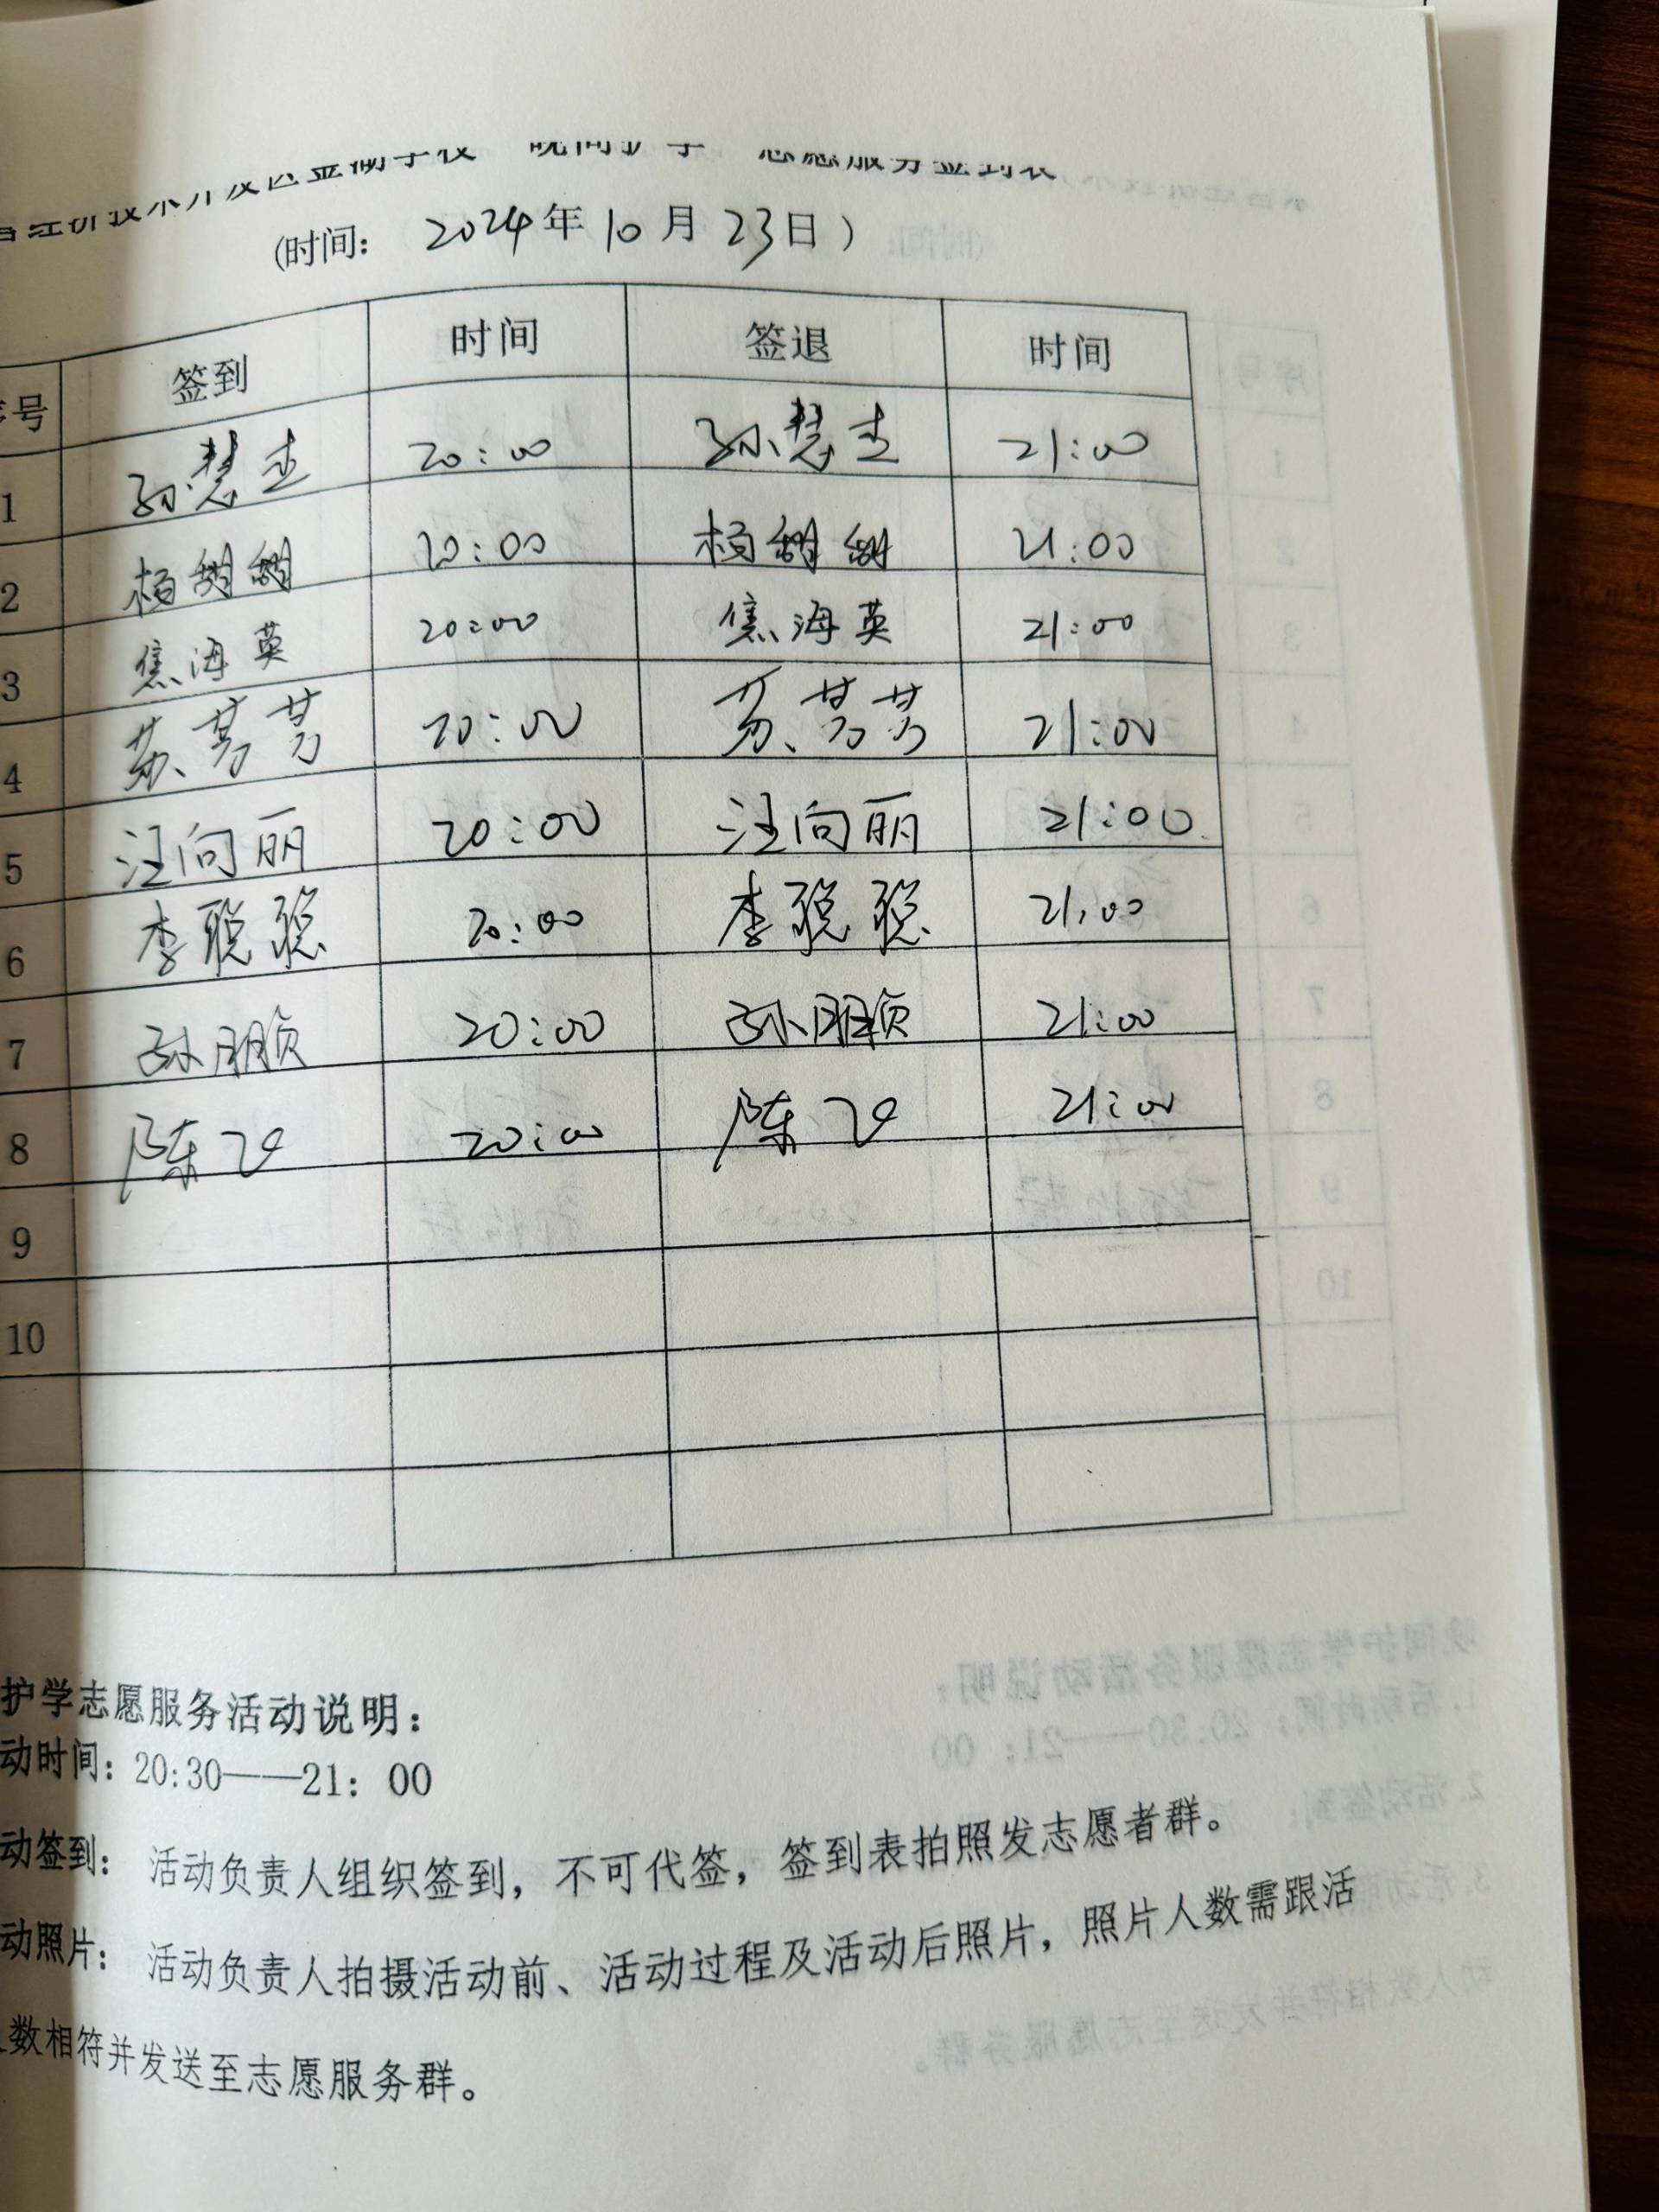 经济技术开发区金湖学校“晚间护学”志愿服务签到表
(时间: 2024年10月23日)
序号 签到 时间 签退 时间
1 孙慧 20:00 孙慧 21:00
2 杨甜甜 20:00 杨甜甜 21:00
3 焦海英 20:00 焦海英 21:00
4 苏芳芳 20:00 苏芳芳 21:00
5 汪向丽 20:00 汪向丽 21:00
6 李聪聪 20:00 李聪聪 21:00
7 孙朋颀 20:00 孙朋颀 21:00
8 陈飞 20:00 陈飞 21:00
9
10
护学志愿服务活动说明:
动时间: 20:30——21: 00
动签到: 活动负责人组织签到,不可代签,签到表拍照发志愿者群。
动照片: 活动负责人拍摄活动前、活动过程及活动后照片,照片人数需跟活
数相符并发送至志愿服务群。